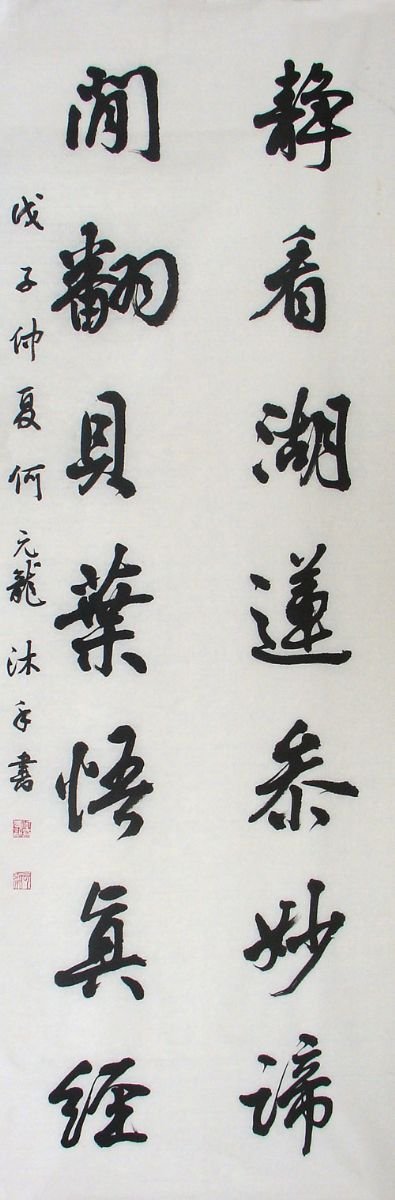 静看湖蓮参妙諦
閒翻貝葉悟真經
戊子仲夏何元龍沐手書